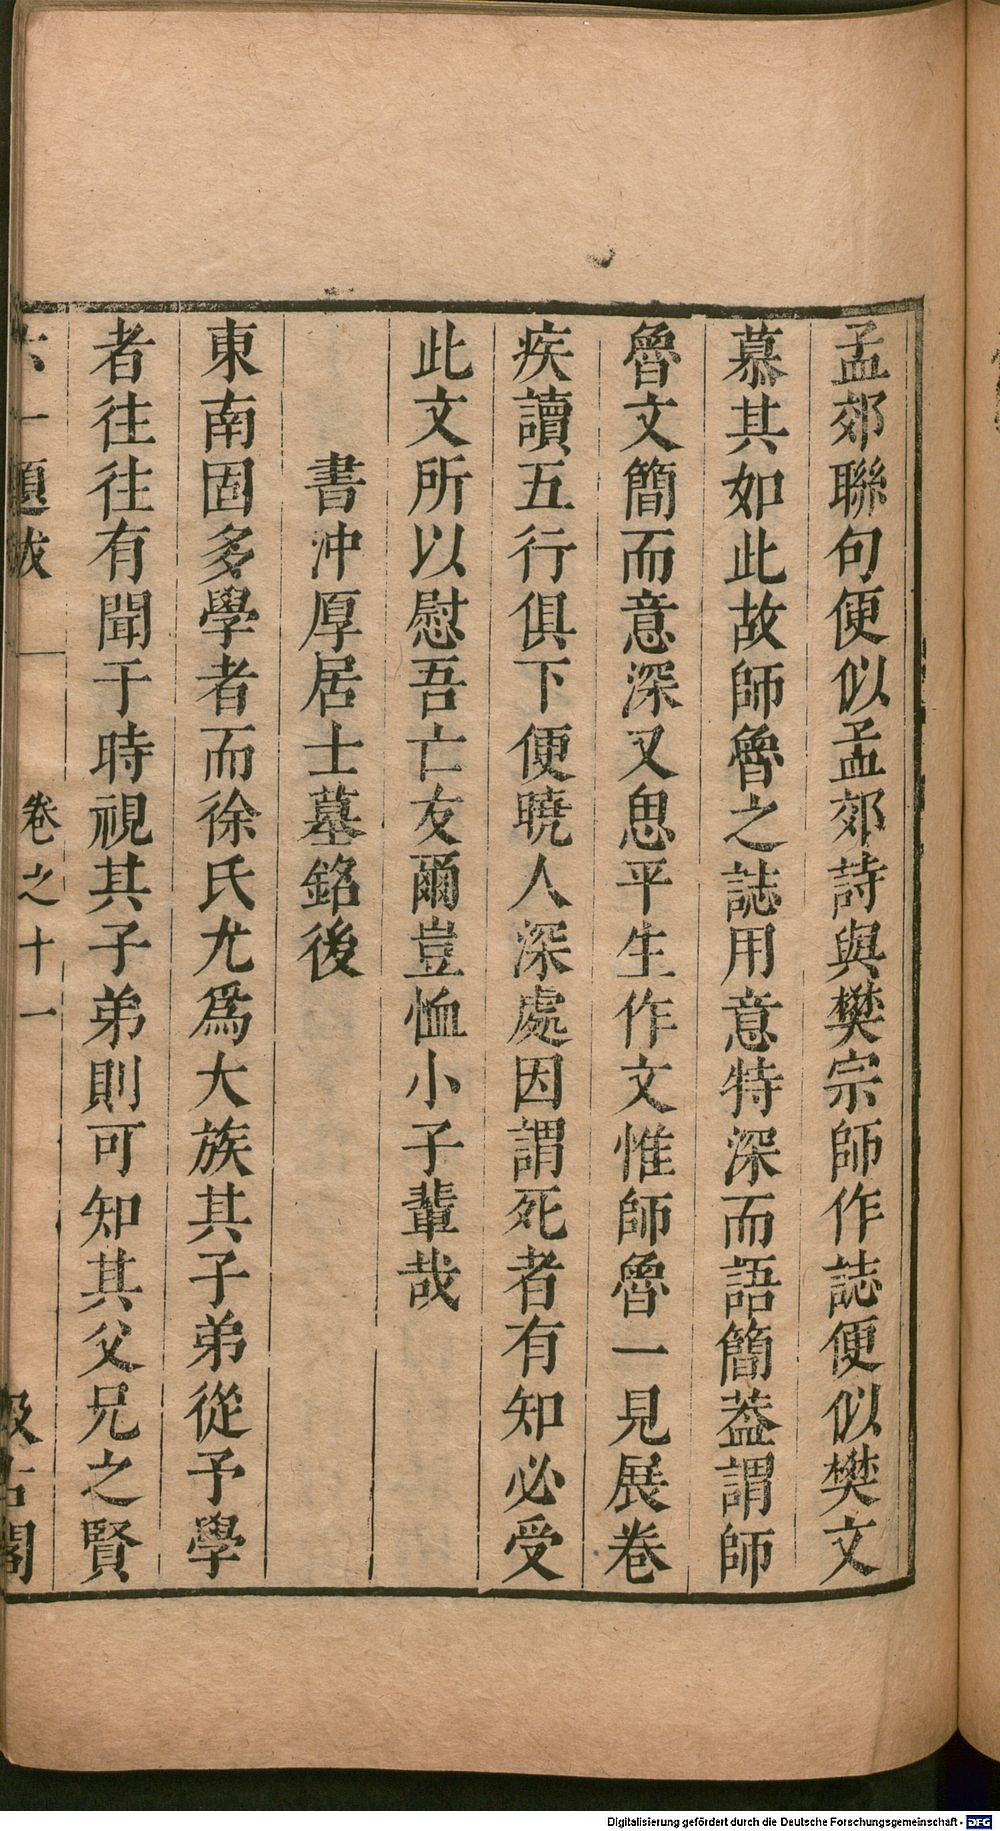 孟郊聯句便似孟郊詩與樊宗師作誌便似樊文
慕其如此故師魯之誌用意特深而語簡葢謂師
魯文簡而意深又思平生作文惟師魯一見展卷
疾讀五行俱下便曉人深處因謂死者有知必受
此文所以慰吾亡友爾豈恤小子輩哉
書沖厚居士墓銘後
東南固多學者而徐氏尤爲大族其子弟從予學
者往往有聞于時視其子弟則可知其父兄之賢
六一題跋 卷之十一 汲古閣
Digitalisierung gefördert durch die Deutsche Forschungsgemeinschaft - DFG